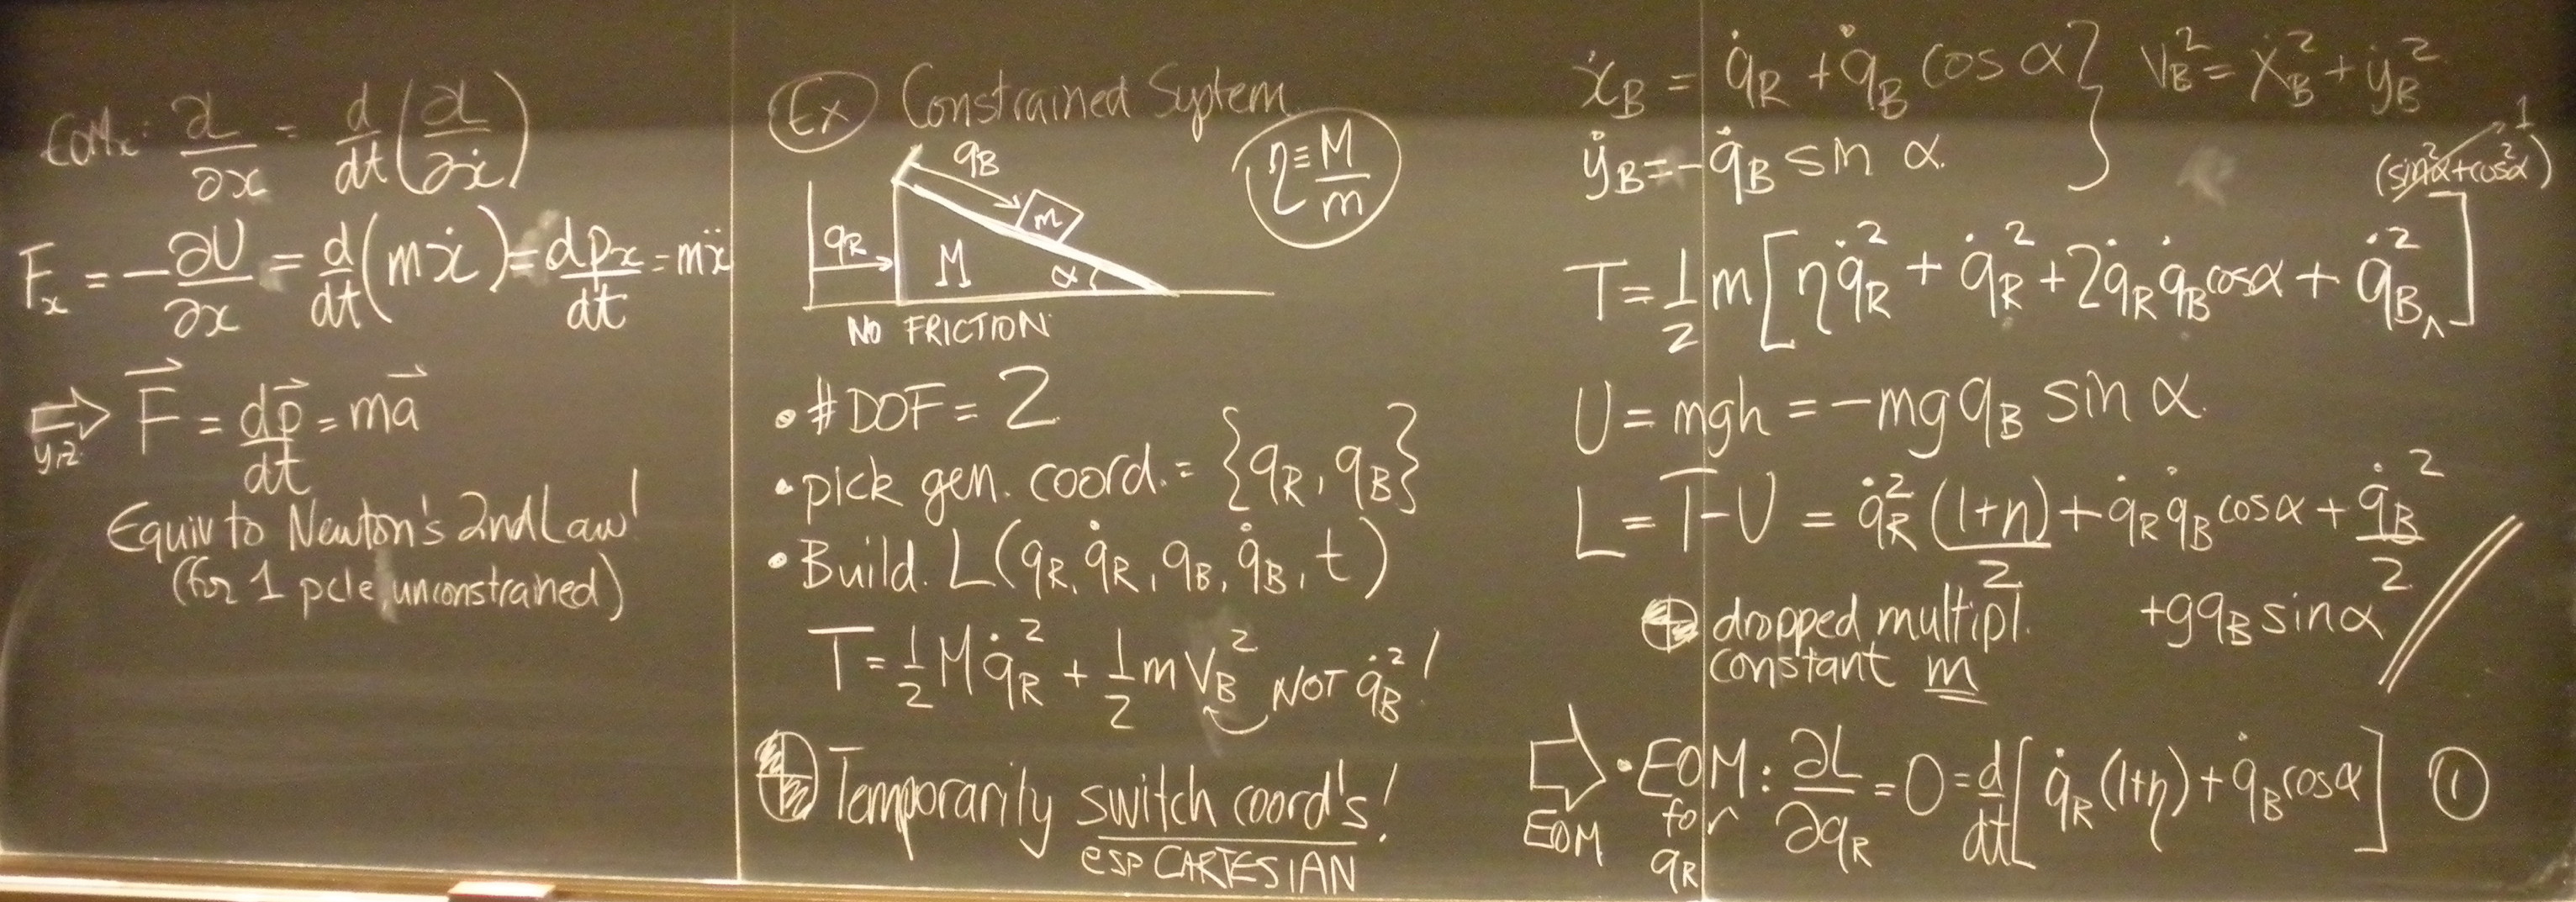 EOMx: ∂L/∂x = d/dt(∂L/∂ẋ)
Fx = -∂U/∂x = d/dt(mẋ) = dpx/dt = mẍ
⇒ y,z F⃗ = dp⃗/dt = ma⃗
Equiv to Newton's 2nd Law!
(for 1 pcle, unconstrained)
Ex Constrained System
η ≡ M/m
qB
m
qR
M
α
NO FRICTION
• # DOF = 2
• pick gen. coord. = {qR, qB}
• Build. L(qR, q̇R, qB, q̇B, t)
T = 1/2 M q̇R² + 1/2 m VB² NOT q̇B²!
⊕ Temporarity switch coord's!
esp CARTESIAN
ẋB = q̇R + q̇B cos α } VB² = ẋB² + ẏB²
ẏB = -q̇B sin α
(sin²α + cos²α) 1
T = 1/2 m [ηq̇R² + q̇R² + 2q̇R q̇B cosα + q̇B² ^]
U = mgh = -mg qB sin α
L = T-U = q̇R² (1+η)/2 + q̇R q̇B cosα + q̇B²/2
+gqB sinα
⊕ dropped multipl.
constant m
⇒ EOM • EOM for qR : ∂L/∂qR = 0 = d/dt[q̇R (1+η) + q̇B cosα] ①